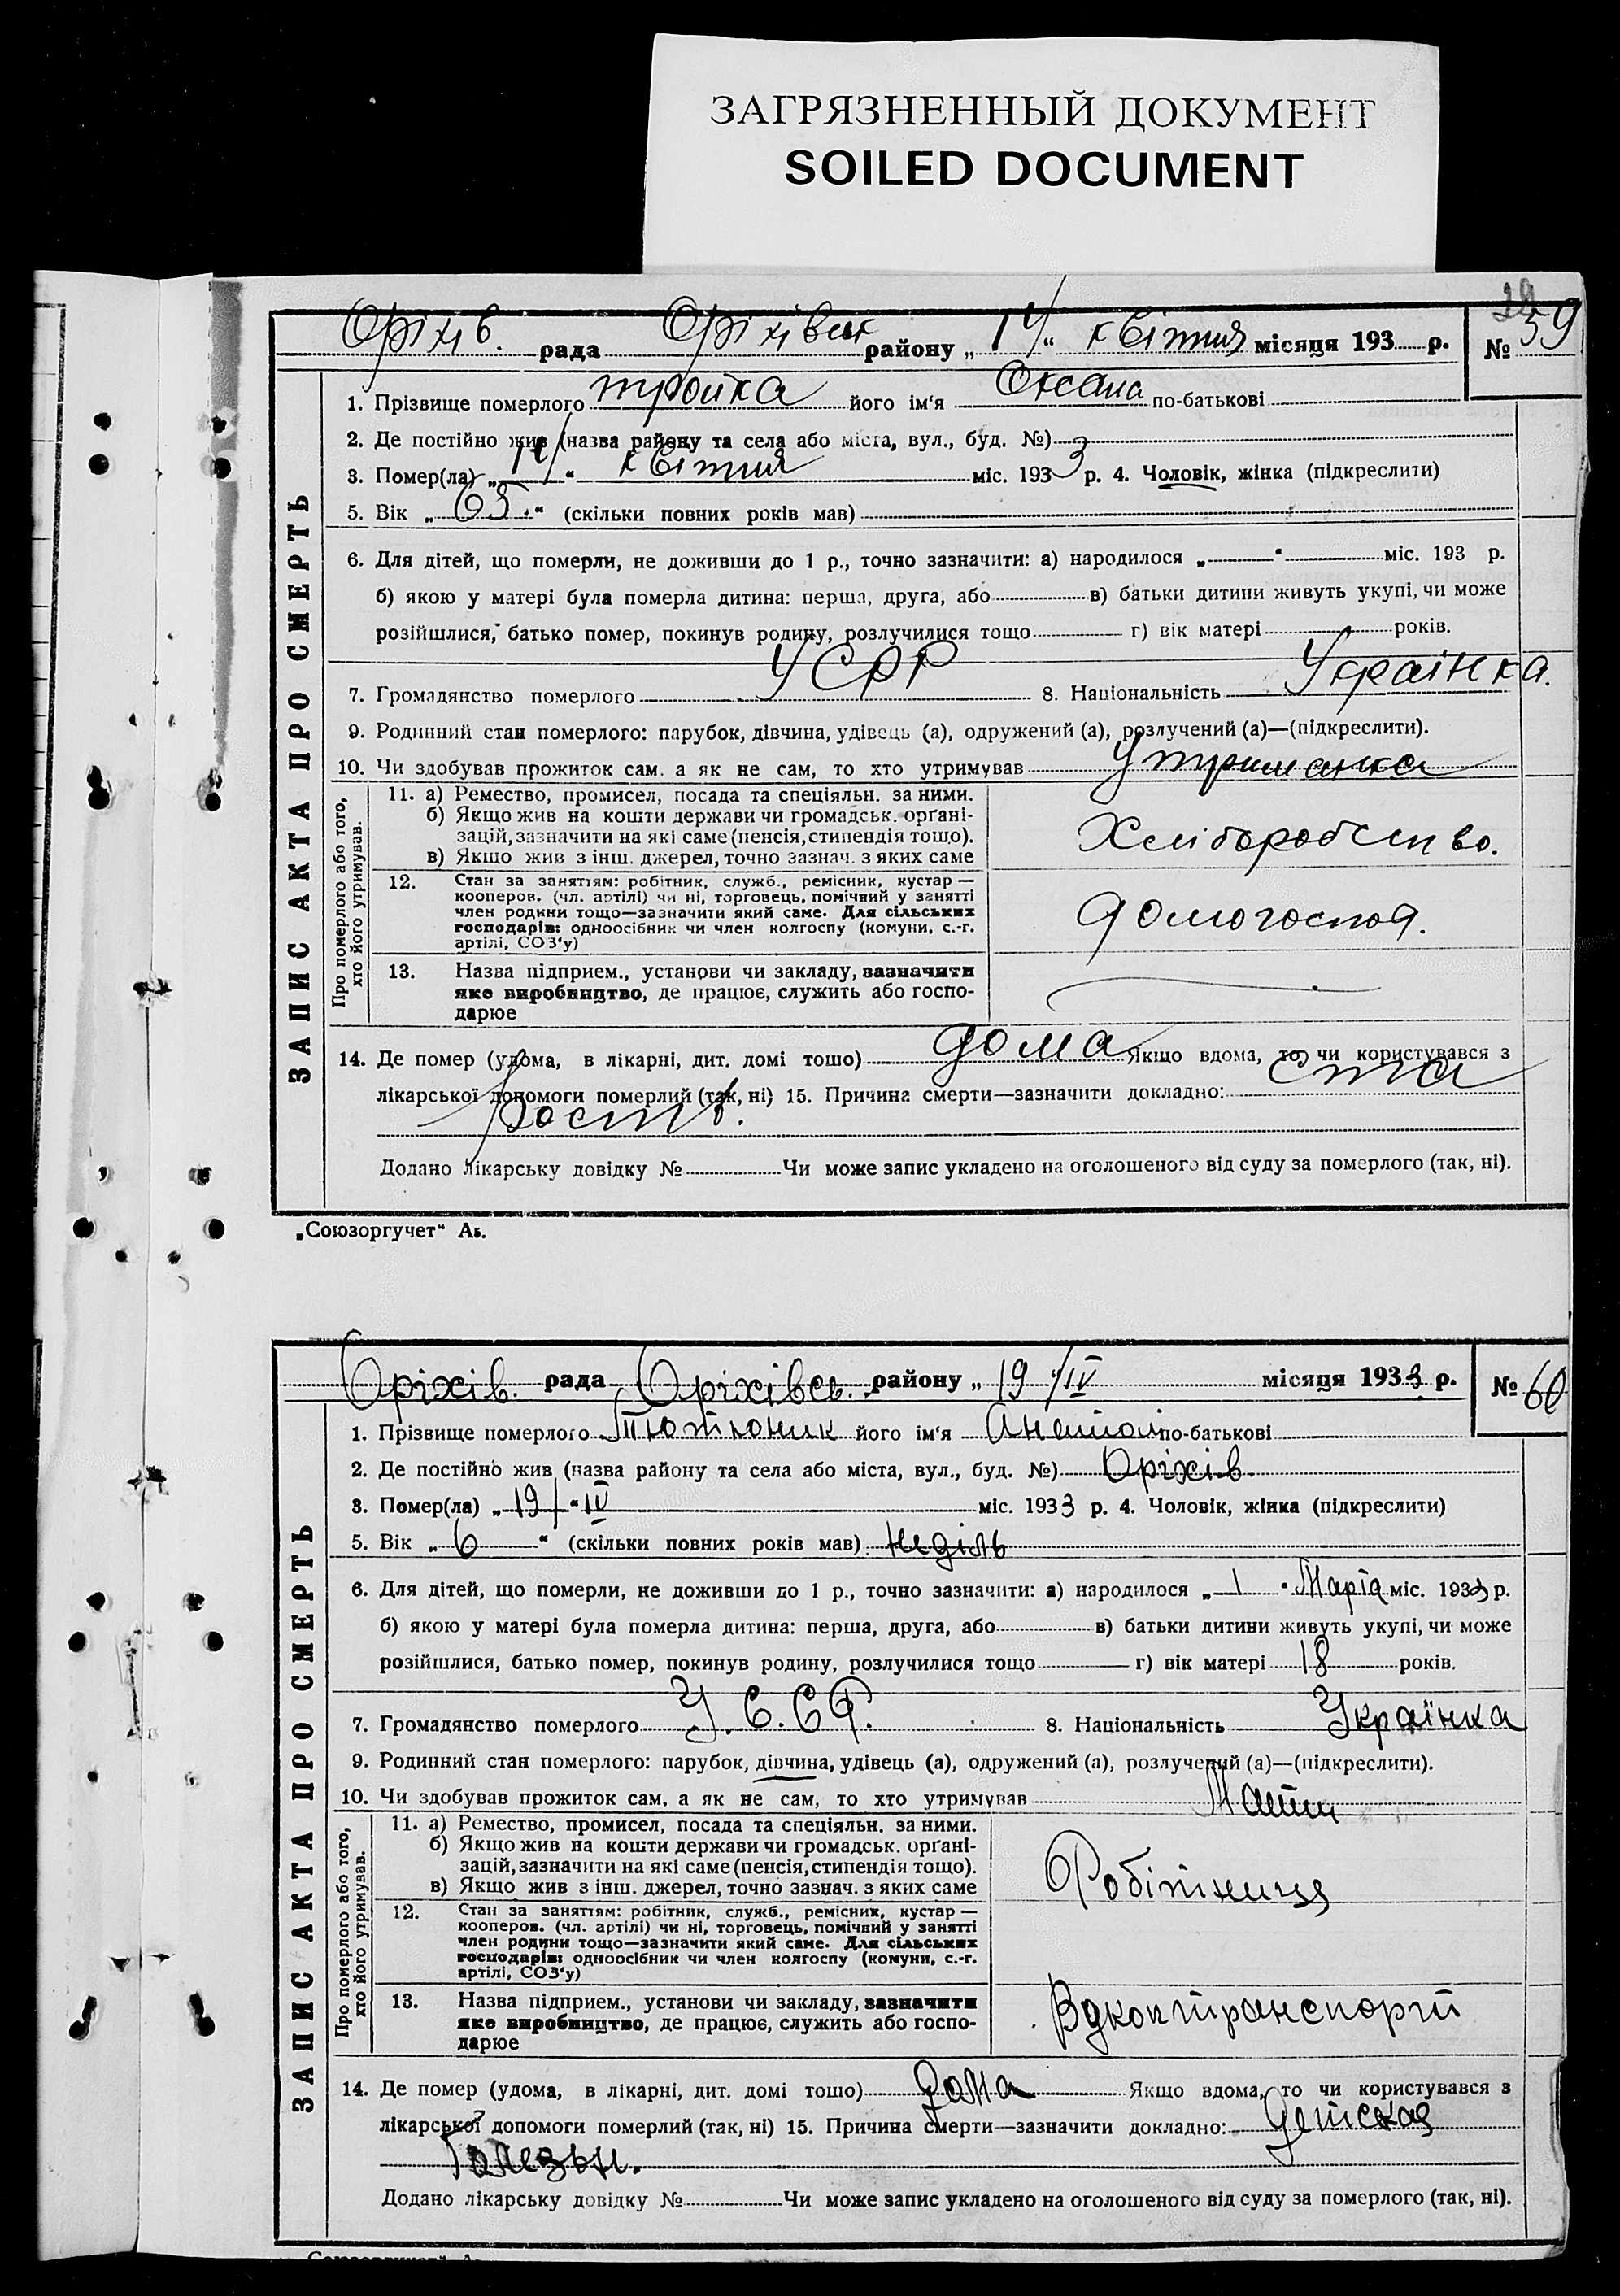 ЗАГРЯЗНЕННЫЙ ДОКУМЕНТ
SOILED DOCUMENT
Оріхів. рада Оріхівськ району „14“ квітня місяця 193 р. № 59
ЗАПИС АКТА ПРО СМЕРТЬ
1. Прізвище померлого Тройка його ім'я Оксана по-батькові
2. Де постійно жив (назва району та села або міста, вул., буд. №)
3. Помер(ла) „14“ квітня міс. 1933 р. 4. Чоловік, жінка (підкреслити)
5. Вік „65.“ (скільки повних років мав)
6. Для дітей, що померли, не доживши до 1 р., точно зазначити: а) народилося „ “ міс. 193 р.
б) якою у матері була померла дитина: перша, друга, або в) батьки дитини живуть укупі, чи може
розійшлися, батько помер, покинув родину, розлучилися тощо г) вік матері років.
7. Громадянство померлого УСРР 8. Національність Українка.
9. Родинний стан померлого: парубок, дівчина, удівець (а), одружений (а), розлучений (а)—(підкреслити).
10. Чи здобував прожиток сам, а як не сам, то хто утримував Утриманка
Про померлого або того, хто його утримував.
11. а) Ремество, промисел, посада та спеціяльн. за ними.
б) Якщо жив на кошти держави чи громадськ. органі-
зацій, зазначити на які саме (пенсія, стипендія тощо).
в) Якщо жив з інш. джерел, точно зазнач. з яких саме
Хліборобство.
12. Стан за заняттям: робітник, служб., ремісник, кустар —
кооперов. (чл. артілі) чи ні, торговець, помічний у занятті
член родини тощо—зазначити який саме. Для сільських
господарів: одноосібник чи член колгоспу (комуни, с.-г.
артілі, СОЗ'у)
Домогоспод.
13. Назва підприєм., установи чи закладу, зазначити
яке виробництво, де працює, служить або госпо-
дарює
14. Де помер (удома, в лікарні, дит. домі тощо) дома Якщо вдома, то чи користувався з
лікарської допомоги померлий (так, ні) 15. Причина смерти—зазначити докладно: Ста
рость.
Додано лікарську довідку № Чи може запис укладено на оголошеного від суду за померлого (так, ні).
„Союзоргучет“ Аз.
Оріхів. рада Оріхівськ. району „19“ IV місяця 1933 р. № 60
ЗАПИС АКТА ПРО СМЕРТЬ
1. Прізвище померлого Тютюник його ім'я Анатол по-батькові
2. Де постійно жив (назва району та села або міста, вул., буд. №) Оріхів.
3. Помер(ла) „19“ IV міс. 1933 р. 4. Чоловік, жінка (підкреслити)
5. Вік „6“ (скільки повних років мав) неділь
6. Для дітей, що померли, не доживши до 1 р., точно зазначити: а) народилося „1“ Марта міс. 1933 р.
б) якою у матері була померла дитина: перша, друга, або в) батьки дитини живуть укупі, чи може
розійшлися, батько помер, покинув родину, розлучилися тощо г) вік матері 18 років.
7. Громадянство померлого У.С.СР. 8. Національність Українка
9. Родинний стан померлого: парубок, дівчина, удівець (а), одружений (а), розлучений (а)—(підкреслити).
10. Чи здобував прожиток сам, а як не сам, то хто утримував Мати
Про померлого або того, хто його утримував.
11. а) Ремество, промисел, посада та спеціяльн. за ними.
б) Якщо жив на кошти держави чи громадськ. органі-
зацій, зазначити на які саме (пенсія, стипендія тощо).
в) Якщо жив з інш. джерел, точно зазнач. з яких саме
Робітниця
12. Стан за заняттям: робітник, служб., ремісник, кустар —
кооперов. (чл. артілі) чи ні, торговець, помічний у занятті
член родини тощо—зазначити який саме. Для сільських
господарів: одноосібник чи член колгоспу (комуни, с.-г.
артілі, СОЗ'у)
13. Назва підприєм., установи чи закладу, зазначити
яке виробництво, де працює, служить або госпо-
дарює
14. Де помер (удома, в лікарні, дит. домі тощо) дома Якщо вдома, то чи користувався з
лікарської допомоги померлий (так, ні) 15. Причина смерти—зазначити докладно: детская
болезьн.
Додано лікарську довідку № Чи може запис укладено на оголошеного від суду за померлого (так, ні).